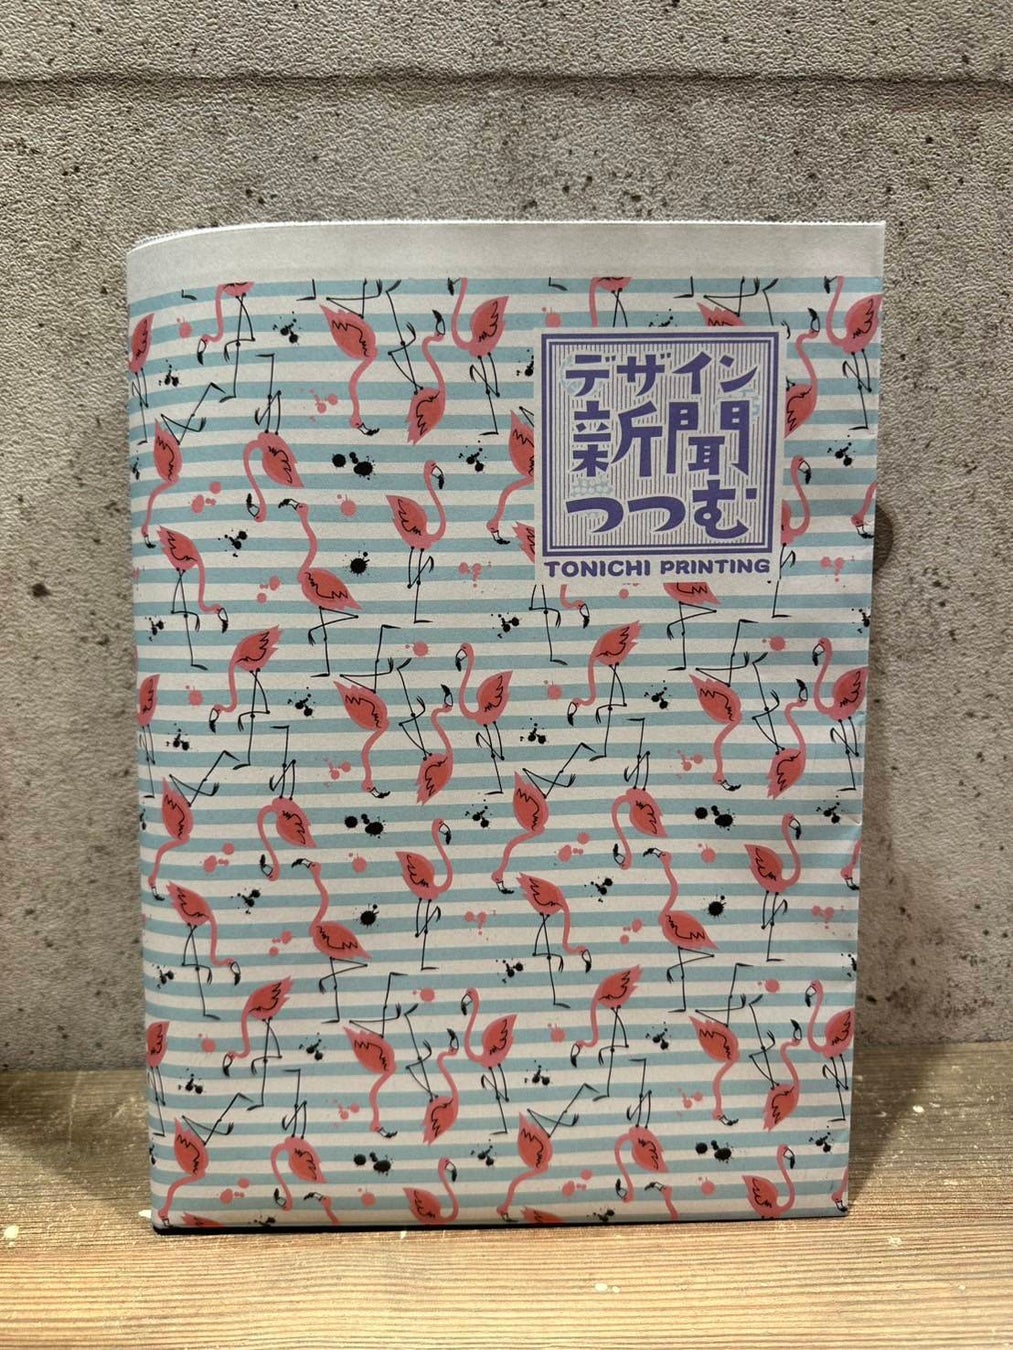 デザイン
新聞
つつむ
TONICHI PRINTING